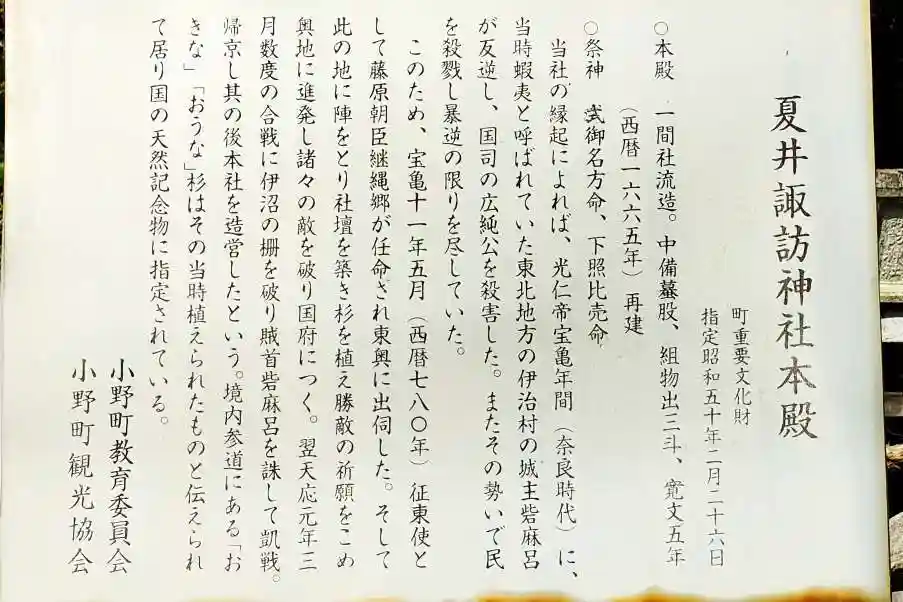 夏井諏訪神社本殿
町重要文化財
指定昭和五十年二月二十六日
○本殿 一間社流造。中備蟇股、組物出三斗、寛文五年
（西暦一六六五年）再建
○祭神 武御名方命、下照比売命
当社の縁起によれば、光仁帝宝亀年間（奈良時代）に、
当時蝦夷と呼ばれていた東北地方の伊治村の城主砦麻呂
が反逆し、国司の広純公を殺害した。またその勢いで民
を殺戮し暴逆の限りを尽していた。
このため、宝亀十一年五月（西暦七八〇年）征東使と
して藤原朝臣継縄郷が任命され東奥に出伺した。そして
此の地に陣をとり社壇を築き杉を植え勝敵の祈願をこめ
奥地に進発し諸々の敵を破り国府につく。翌天応元年三
月数度の合戦に伊沼の柵を破り賊首砦麻呂を誅して凱戦。
帰京し其の後本社を造営したという。境内参道にある「お
きな」「おうな」杉はその当時植えられたものと伝えられ
て居り国の天然記念物に指定されている。
小野町教育委員会
小野町観光協会